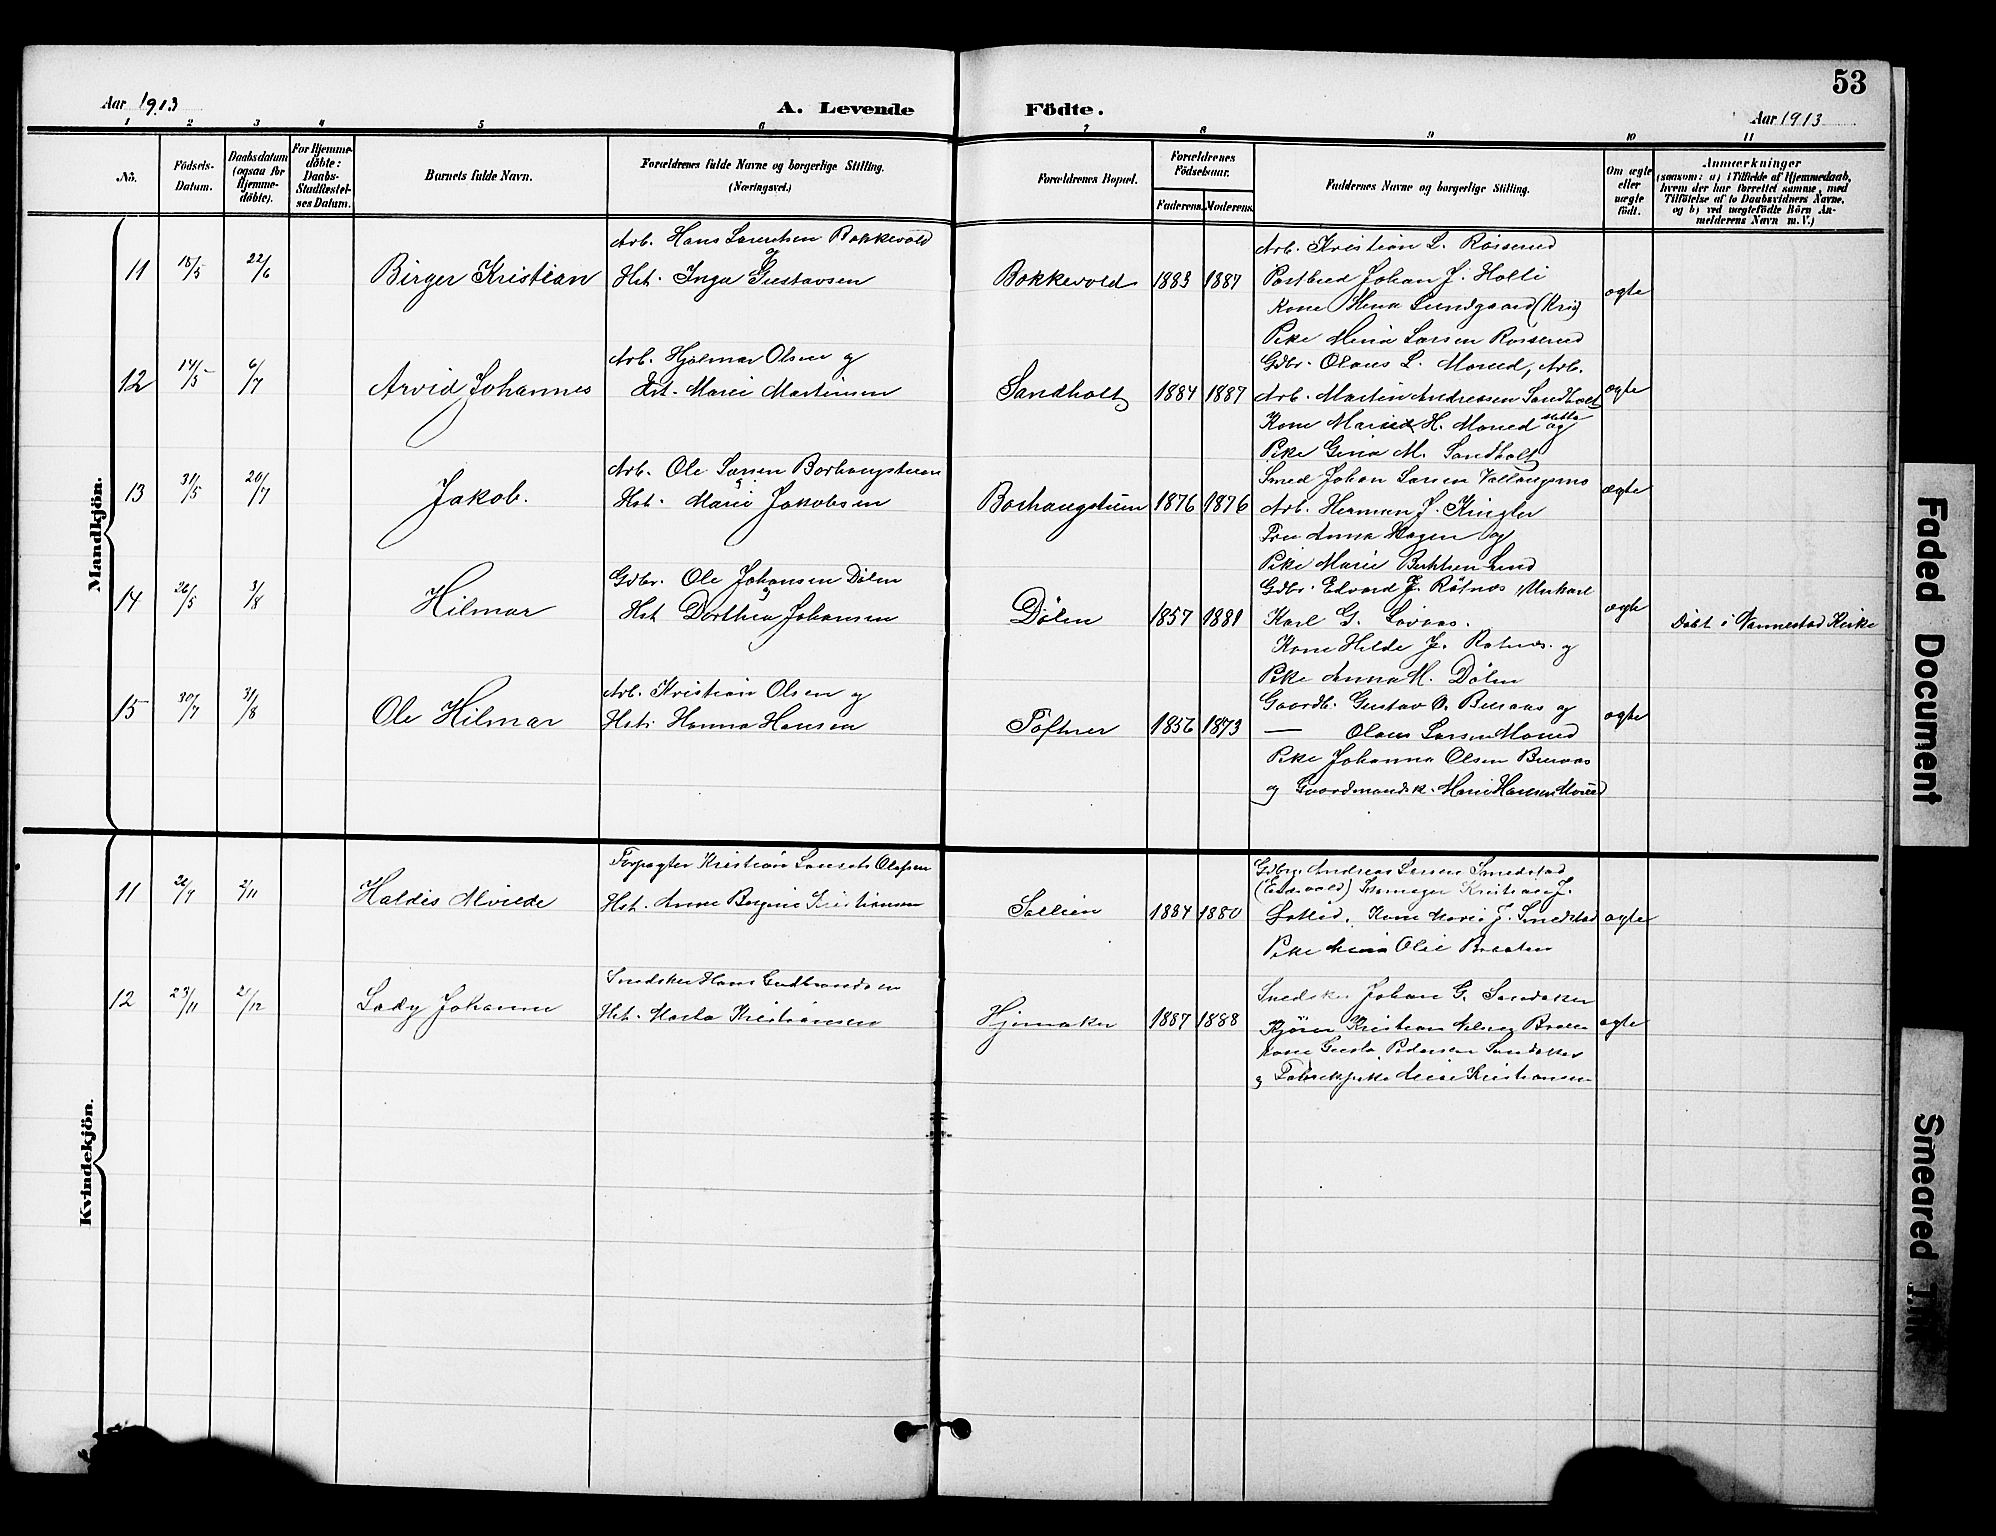 53
Aar 1913
A. Levende
Födte.
Aar 1913
1 2 3 4 5 6 7 8 9 10 11
No.
Födsels-
Datum.
Daabsdatum
(ogsaa for
Hjemme-
döbte).
For Hjemme-
döbte:
Daabs-
Stadfæstel-
ses Datum.
Barnets fulde Navn.
Forældrenes fulde Navne og borgerlige Stilling.
(Næringsvei.)
Forældrenes Bopæl.
Forældrenes
Födselsaar.
Faderens. Moderens.
Faddernes Navne og borgerlige Stilling.
Om ægte
eller
uægte
födt.
Anmærkninger
(saasom: a) i Tilfælde af Hjemmedaab,
hvem der har forrettet samme, med
Tilföielse af to Daabsvidners Navne,
og b) ved uægtefödte Börn An-
melderens Navn m. V.)
Mandkjön.
11 18/5 22/6 Birger Kristian
Arb. Hans Lauritsen Bakkevold
og
Hst. Inga Gustavsen
Bakkevold 1883 1887
Arb. Kristian L. Rösserud
Postbud Johan J. Holli
Kone Mina Lundgaard (Kria)
Pike Mina Larsen Rösserud
ægte
12 14/5 6/7 Arvid Johannes
Arb. Hjalmar Olsen og
Hst. Marie Martinsen
Sandholt 1884 1887
Gdbr. Olaus L. Moned, Arb.
Arb. Martin Andreassen Sandholt
Kone Marie H. Moned og
Pike Gina M. Sandholt
ægte
13 31/5 20/7 Jakob.
Arb. Ole Larsen Borhaugstuen
og
Hst. Marie Jakobsen
Borhaugstuen 1876 1876
Smed Johan Larsen
Arb. Herman J. Kingler
Fru Anna Hagen og
Pike Marie
ægte
14 26/5 3/8 Hilmar
Gdbr. Ole Johansen Dölen
og
Hst Dorthea Johansen
Dölen 1857 1881
Gdbr. Edvard J. Rötnes, Unkarl
Karl G. Lövaas.
Kone Hilda J. Rotnes. og
Pike Anna M. Dölen
ægte
Döbt i Vannestad Kirke
15 30/7 31/8 Ole Hilmar
Arb. Kristian Olsen og
Hst. Hanna Hansen
Toftner 1856 1873
Gaardb. Gustav O. Buraas og
— Olaus Larsen Moned
Pike Johanna Olsen Buraas
og Gaardmandsk. Marie Hansen Moned
ægte
Kvindekjön.
11 26/9 2/11 Haldis Alvilde
Forpagter Kristian Laurits Olafsen
Hst. Anne Bergine Kristiansen
Sollien 1884 1880
Gdbr. Andreas Larsen Smedstad
(Eidsvold) Kristian J.
Kone Marie J. Smedstad
Pike Olie Braaten
ægte
12 23/11 21/12 Lady Johanne
Snedker Hans Gudbrandsen
Hst. Marta Kristiansen
Hjemaker 1887 1888
Snedker Johan G. Sandaker
Kjörer Kristian
Kone Gusta Pedersen Sandaker
og Fabrikpike Kristiansen
ægte
Faded Document
Smeared Ink